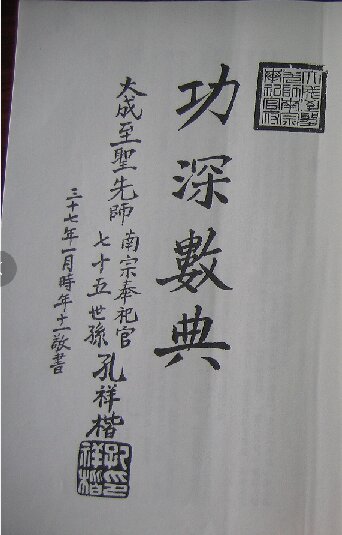 功深數典
大成至聖先師南宗奉祀官
七十五世孫孔祥楷
三十七年一月時年十一敬書
孔祥楷印